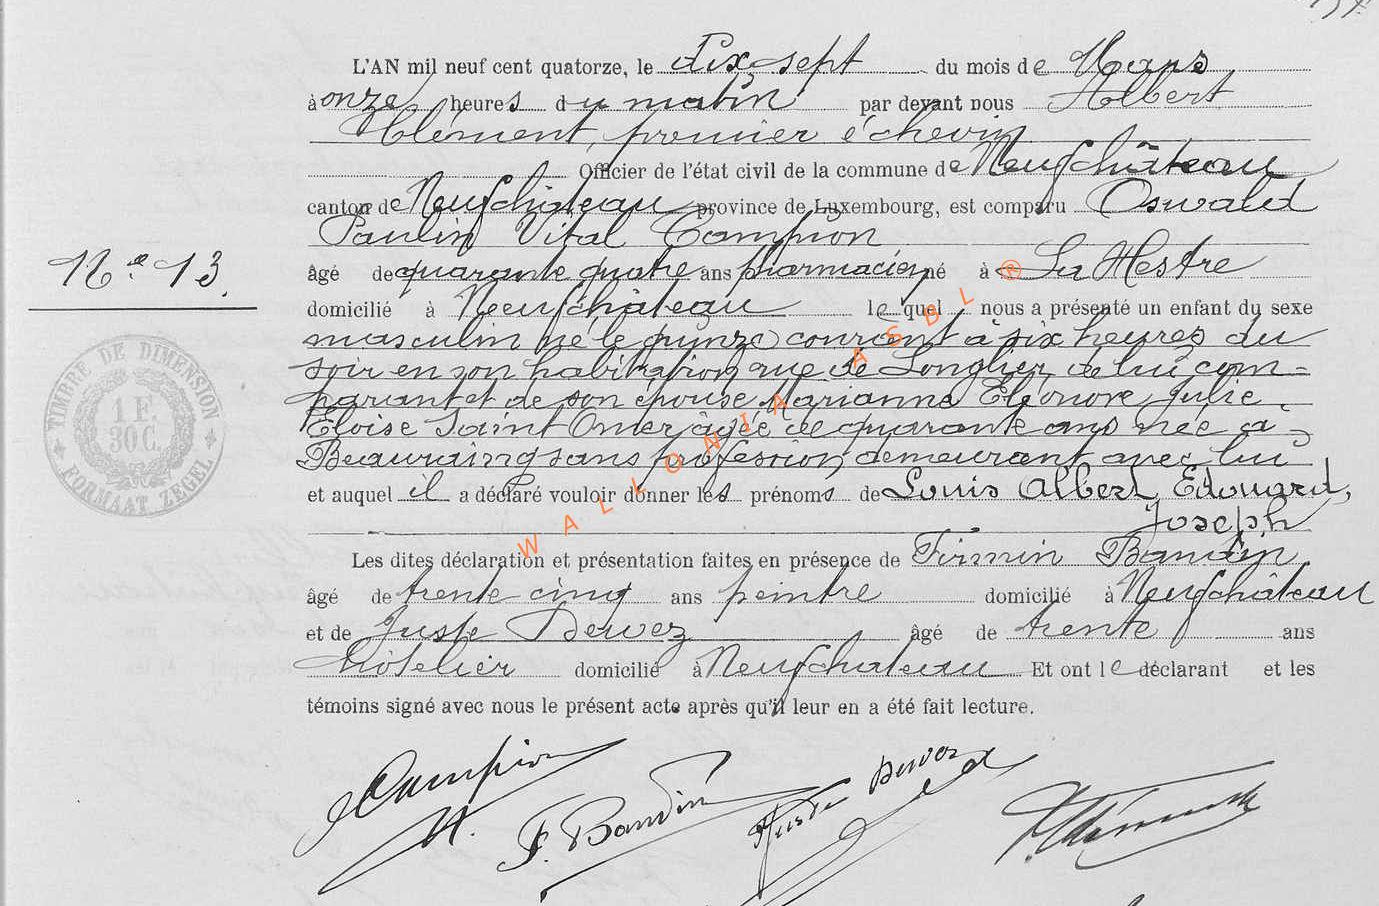 L'AN mil neuf cent quatorze, le Dix-sept du mois de Mars
à onze heures du matin par devant nous Albert
Clément, premier échevin
Officier de l'état civil de la commune de Neufchâteau
canton de Neufchâteau province de Luxembourg, est comparu Oswald
Paulin Vital Campion
N° 13.
âgé de quarante quatre ans pharmacien né à La Hestre
domicilié à Neufchâteau lequel nous a présenté un enfant du sexe
masculin né le quinze courant à six heures du
soir en son habitation rue de Longlier, de lui com-
parant et de son épouse Marianne Eléonore Julie
Eloïse Saint Omer âgée de quarante ans née à
Beauraing sans profession, demeurant avec lui
et auquel il a déclaré vouloir donner les prénoms de Louis Albert, Edouard,
Joseph
Les dites déclaration et présentation faites en présence de Firmin Baudin
âgé de trente cinq ans peintre domicilié à Neufchâteau
et de Juste Dewez âgé de trente ans
hôtelier domicilié à Neufchateau Et ont le déclarant et les
témoins signé avec nous le présent acte après qu'il leur en a été fait lecture.
Campion
F. Baudin
Juste Dewez
A Clément
TIMBRE DE DIMENSION
1 F.
30 C.
FORMAAT ZEGEL
WALLONIA ASBL ®